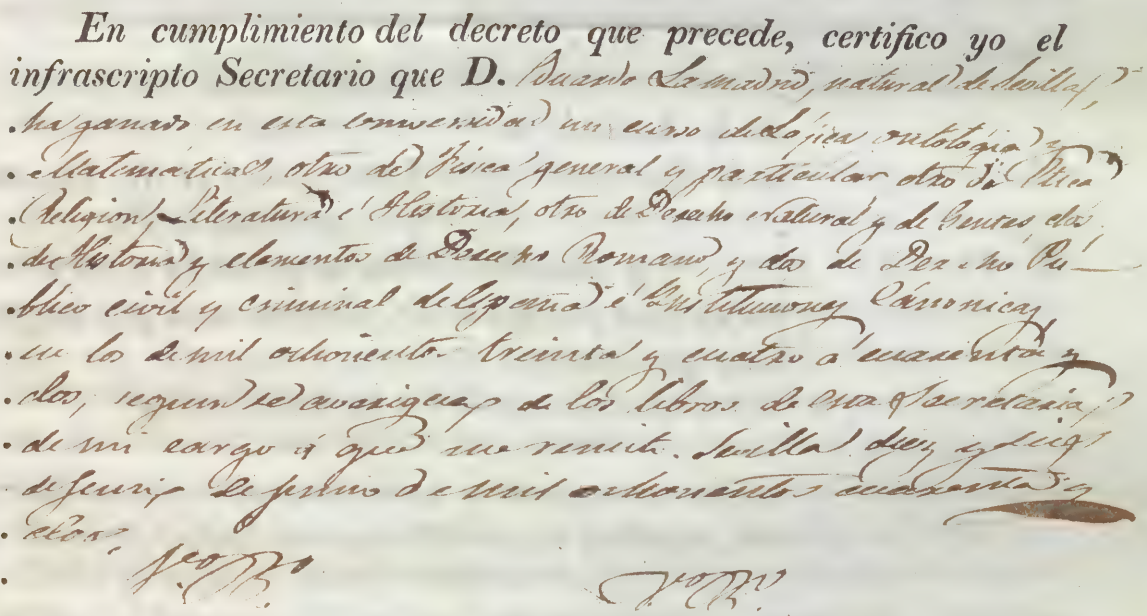 En cumplimiento del decreto que precede, certifico yo el
infrascripto Secretario que D. Eduardo Lamadrid, natural de Sevilla,
ha ganado en esta Universidad un curso de Lógica ontológia y
Matematicas, otro de Fisica general y particular otro de Etica
Religion, Literatura é Historia, otro de Derecho Natural y de Gentes, dos,
de Historia y elementos de Derecho Romano, y dos de Derecho Pú-
blico civil y criminal de España é Instituciones Cánonicas,
en los de mil ochocientos treinta y cuatro á cuarenta y
dos, segun se averigua de los libros de esta Secretaria
de mi cargo á que me remito. Sevilla diez y
de Junio de mil ochocientos cuarenta y
dos,
Vº Bº Vº Bº